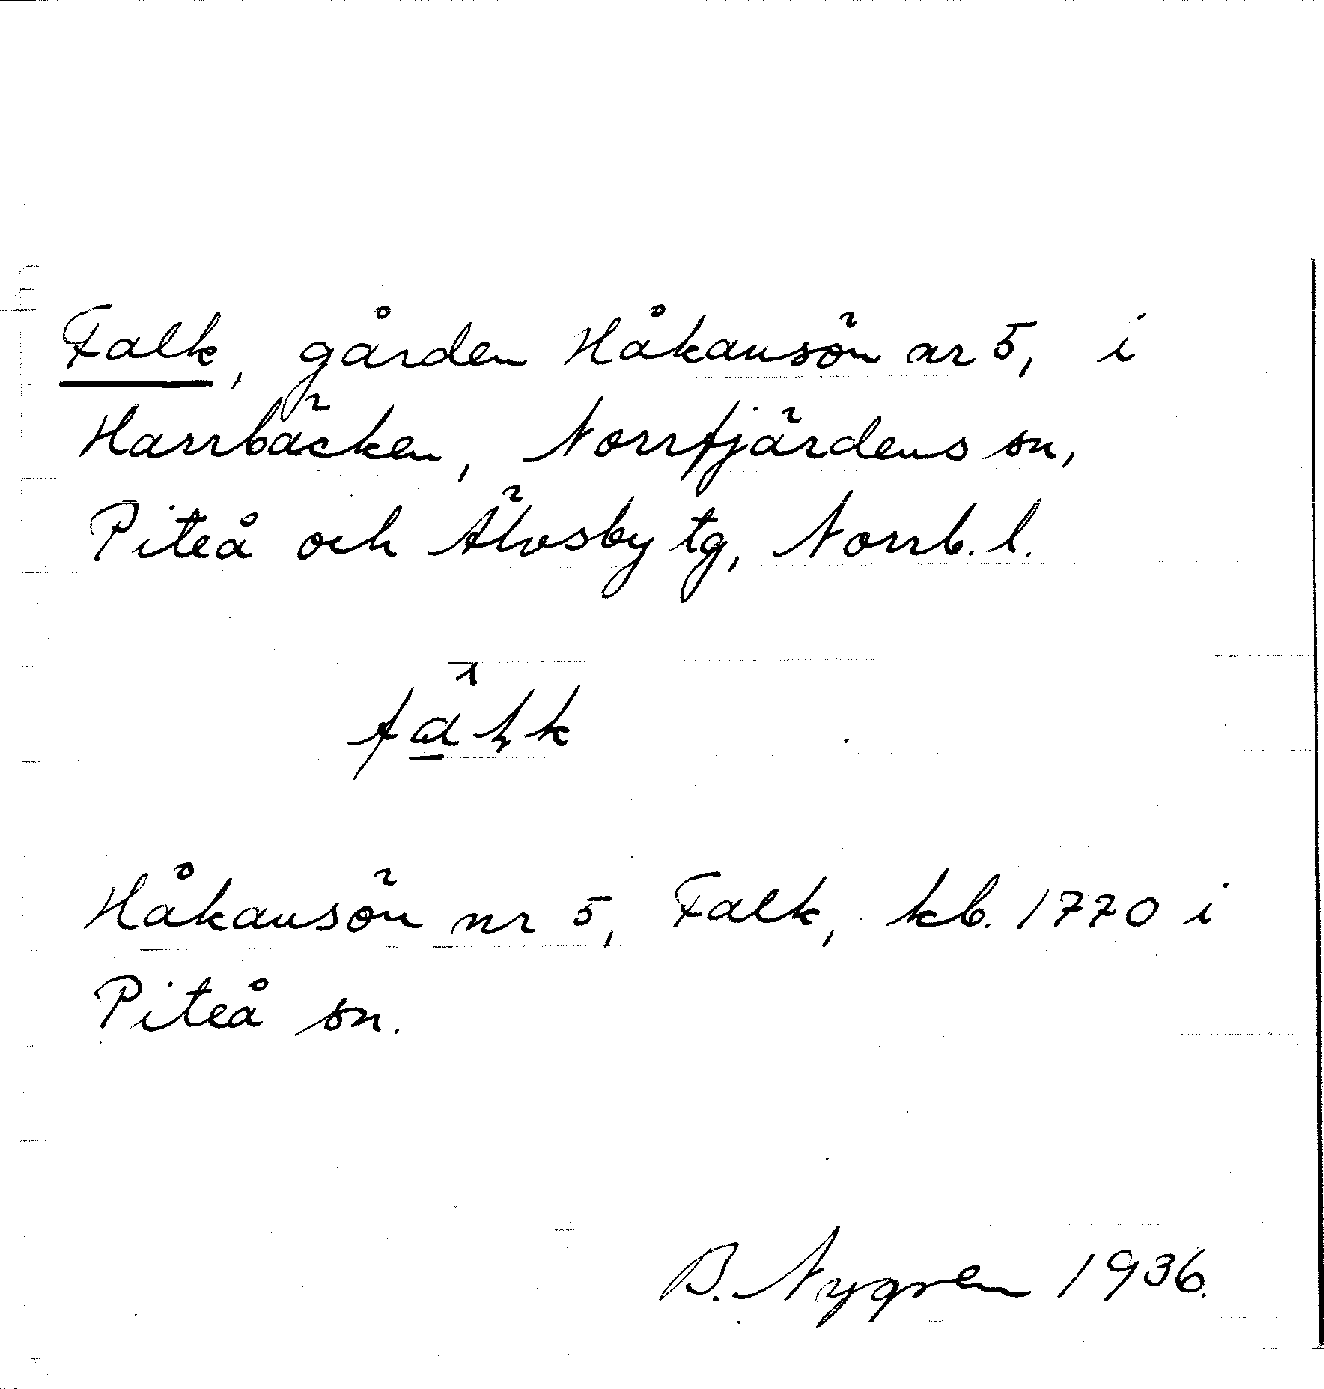 Falk, gården Håkansön nr 5, i
Harrbäcken, Norrfjärdens sn,
Piteå och Älvsby tg, Norrb. l.
Håkansön nr 5, Falk, kb. 1770 i
Piteå sn.
B. Nygren 1936.